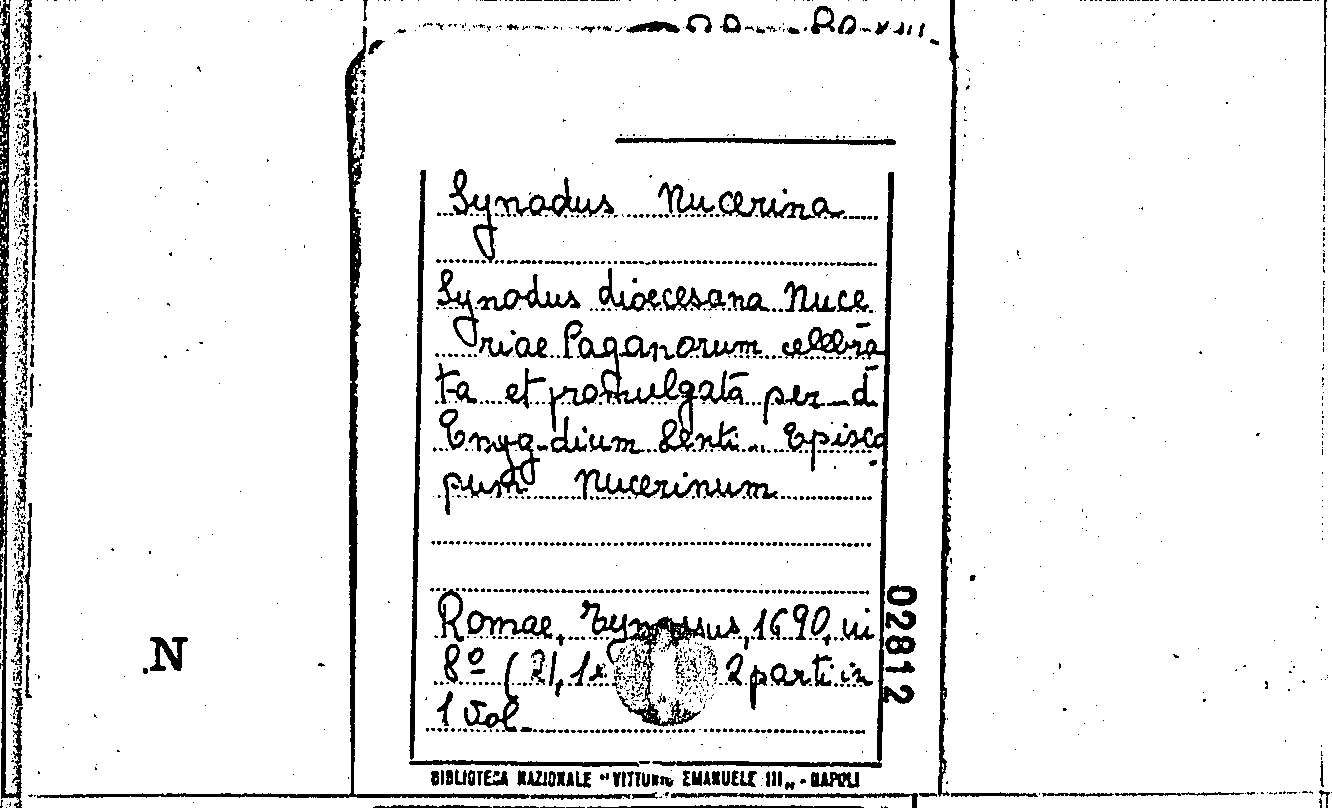 Synodus Nucerina
Synodus dioecesana Nuce
riae Paganorum celebra
ta et promulgata per d
dium Lenti.. Episco
pum Nucerinum
Romae, 1690, in
8º (2), 2 parti in
1 vol.
02812
.N
BIBLIOTECA NAZIONALE "VITTORIO EMANUELE III„ - NAPOLI